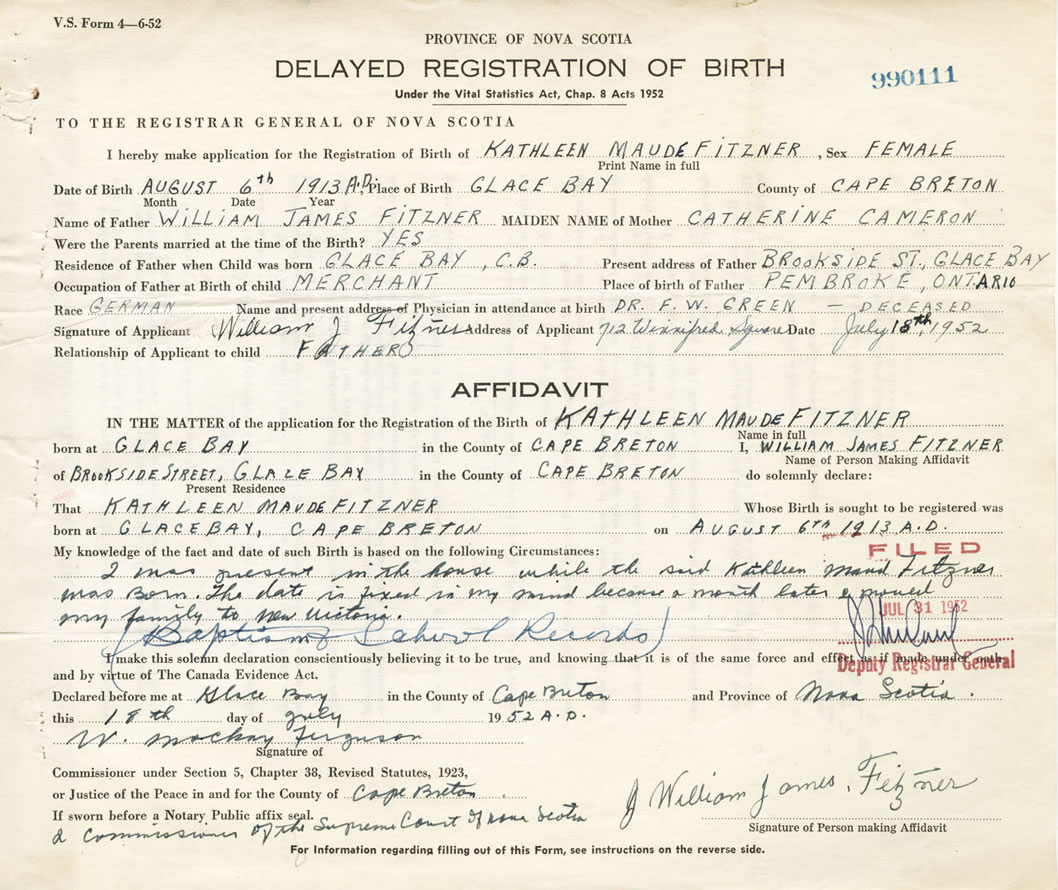 V.S. Form 4—6-52
PROVINCE OF NOVA SCOTIA
DELAYED REGISTRATION OF BIRTH
990111
Under the Vital Statistics Act, Chap. 8 Acts 1952
TO THE REGISTRAR GENERAL OF NOVA SCOTIA
I hereby make application for the Registration of Birth of KATHLEEN MAUDE FITZNER, Sex FEMALE
Print Name in full
Date of Birth AUGUST 6th 1913 A.D., Place of Birth GLACE BAY County of CAPE BRETON
Month Date Year
Name of Father WILLIAM JAMES FITZNER MAIDEN NAME of Mother CATHERINE CAMERON
Were the Parents married at the time of the Birth? YES
Residence of Father when Child was born GLACE BAY, C.B. Present address of Father BROOKSIDE ST., GLACE BAY
Occupation of Father at Birth of child MERCHANT Place of birth of Father PEMBROKE, ONTARIO
Race GERMAN Name and present address of Physician in attendance at birth DR. F. W. GREEN — DECEASED
Signature of Applicant William J Fitzner Address of Applicant 712 Winnifred Square Date July 18th, 1952
Relationship of Applicant to child FATHER
AFFIDAVIT
IN THE MATTER of the application for the Registration of the Birth of KATHLEEN MAUDE FITZNER
Name in full
born at GLACE BAY in the County of CAPE BRETON I, WILLIAM JAMES FITZNER
Name of Person Making Affidavit
of BROOKSIDE STREET, GLACE BAY in the County of CAPE BRETON do solemnly declare:
Present Residence
That KATHLEEN MAUDE FITZNER Whose Birth is sought to be registered was
born at GLACE BAY, CAPE BRETON on AUGUST 6th 1913 A.D.
My knowledge of the fact and date of such Birth is based on the following Circumstances:
FILED
I was present in the house while the said Kathleen Maud Fitzner
was Born. The date is fixed in my mind because a month later I moved
my family to New Victoria.
JUL 31 1952
(Baptism & School Records)
Deputy Registrar General
I make this solemn declaration conscientiously believing it to be true, and knowing that it is of the same force and effect as if made under oath
and by virtue of The Canada Evidence Act.
Declared before me at Glace Bay in the County of Cape Breton and Province of Nova Scotia.
this 18th day of July 1952 A.D.
W. Mackay Ferguson
Signature of
Commissioner under Section 5, Chapter 38, Revised Statutes, 1923,
or Justice of the Peace in and for the County of Cape Breton.
If sworn before a Notary Public affix seal.
a Commissioner of the Supreme Court of Nova Scotia
William James Fitzner
Signature of Person making Affidavit
For Information regarding filling out of this Form, see instructions on the reverse side.